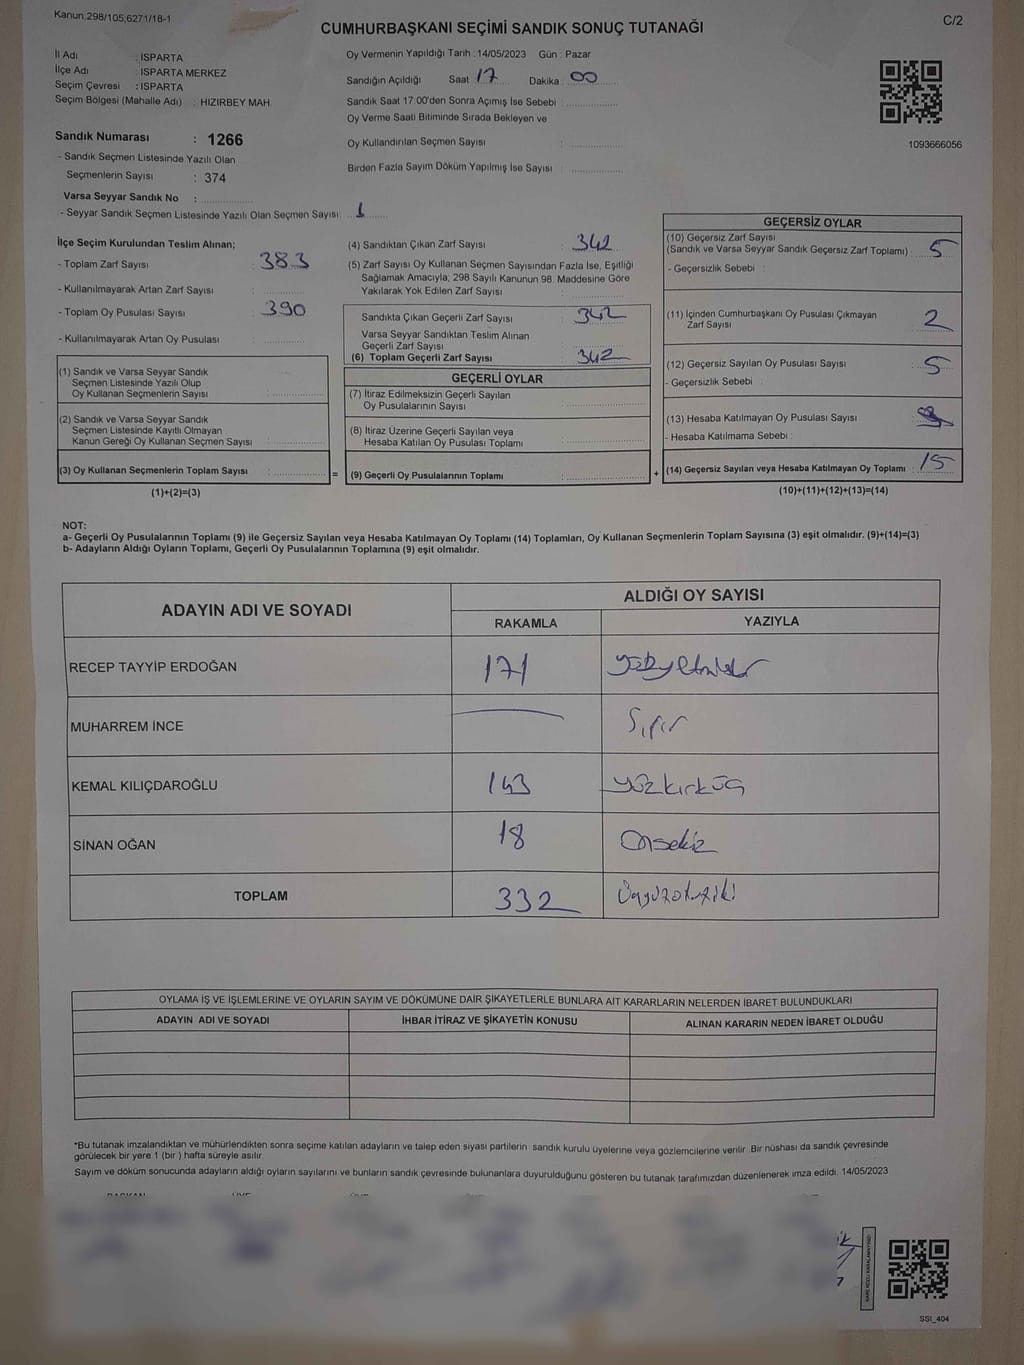 Kanun;298/105,6271/18-1
C/2
CUMHURBAŞKANI SEÇİMİ SANDIK SONUÇ TUTANAĞI
İl Adı : ISPARTA
İlçe Adı : ISPARTA MERKEZ
Seçim Çevresi : ISPARTA
Seçim Bölgesi (Mahalle Adı) : HIZIRBEY MAH.
Oy Vermenin Yapıldığı Tarih : 14/05/2023 Gün : Pazar
Sandığın Açıldığı Saat 17 Dakika : 00
Sandık Saat 17:00'den Sonra Açımış İse Sebebi :
Oy Verme Saati Bitiminde Sırada Bekleyen ve
Oy Kullandırılan Seçmen Sayısı :
Birden Fazla Sayım Döküm Yapılmış İse Sayısı :
1093666056
Sandık Numarası : 1266
- Sandık Seçmen Listesinde Yazılı Olan
Seçmenlerin Sayısı : 374
Varsa Seyyar Sandık No :
- Seyyar Sandık Seçmen Listesinde Yazılı Olan Seçmen Sayısı: 1
İlçe Seçim Kurulundan Teslim Alınan;
- Toplam Zarf Sayısı : 383
- Kullanılmayarak Artan Zarf Sayısı :
- Toplam Oy Pusulası Sayısı : 390
- Kullanılmayarak Artan Oy Pusulası :
(1) Sandık ve Varsa Seyyar Sandık
Seçmen Listesinde Yazılı Olup
Oy Kullanan Seçmenlerin Sayısı :
(2) Sandık ve Varsa Seyyar Sandık
Seçmen Listesinde Kayıtlı Olmayan
Kanun Gereği Oy Kullanan Seçmen Sayısı :
(3) Oy Kullanan Seçmenlerin Toplam Sayısı : =
(1)+(2)=(3)
(4) Sandıktan Çıkan Zarf Sayısı : 342
(5) Zarf Sayısı Oy Kullanan Seçmen Sayısından Fazla İse, Eşitliği
Sağlamak Amacıyla; 298 Sayılı Kanunun 98. Maddesine Göre
Yakılarak Yok Edilen Zarf Sayısı :
Sandıkta Çıkan Geçerli Zarf Sayısı : 342
Varsa Seyyar Sandıktan Teslim Alınan
Geçerli Zarf Sayısı :
(6) Toplam Geçerli Zarf Sayısı : 342
GEÇERLİ OYLAR
(7) İtiraz Edilmeksizin Geçerli Sayılan
Oy Pusulalarının Sayısı :
(8) İtiraz Üzerine Geçerli Sayılan veya
Hesaba Katılan Oy Pusulası Toplamı :
(9) Geçerli Oy Pusulalarının Toplamı : +
GEÇERSİZ OYLAR
(10) Geçersiz Zarf Sayısı
(Sandık ve Varsa Seyyar Sandık Geçersiz Zarf Toplamı) : 5
- Geçersizlik Sebebi :
(11) İçinden Cumhurbaşkanı Oy Pusulası Çıkmayan
Zarf Sayısı : 2
(12) Geçersiz Sayılan Oy Pusulası Sayısı : 5
- Geçersizlik Sebebi :
(13) Hesaba Katılmayan Oy Pusulası Sayısı :
- Hesaba Katılmama Sebebi :
(14) Geçersiz Sayılan veya Hesaba Katılmayan Oy Toplamı : 15
(10)+(11)+(12)+(13)=(14)
NOT:
a- Geçerli Oy Pusulalarının Toplamı (9) ile Geçersiz Sayılan veya Hesaba Katılmayan Oy Toplamı (14) Toplamları, Oy Kullanan Seçmenlerin Toplam Sayısına (3) eşit olmalıdır. (9)+(14)=(3)
b- Adayların Aldığı Oyların Toplamı, Geçerli Oy Pusulalarının Toplamına (9) eşit olmalıdır.
ADAYIN ADI VE SOYADI
ALDIĞI OY SAYISI
RAKAMLA YAZIYLA
RECEP TAYYİP ERDOĞAN 171
MUHARREM İNCE Sıfır
KEMAL KILIÇDAROĞLU 143 yüzkırküç
SİNAN OĞAN 18 Onsekiz
TOPLAM 332 Üçyüzotuziki
OYLAMA İŞ VE İŞLEMLERİNE VE OYLARIN SAYIM VE DÖKÜMÜNE DAİR ŞİKAYETLERLE BUNLARA AİT KARARLARIN NELERDEN İBARET BULUNDUKLARI
ADAYIN ADI VE SOYADI İHBAR İTİRAZ VE ŞİKAYETİN KONUSU ALINAN KARARIN NEDEN İBARET OLDUĞU
*Bu tutanak imzalandıktan ve mühürlendikten sonra seçime katılan adayların ve talep eden siyasi partilerin sandık kurulu üyelerine veya gözlemcilerine verilir. Bir nüshası da sandık çevresinde
görülecek bir yere 1 (bir ) hafta süreyle asılır.
Sayım ve döküm sonucunda adayların aldığı oyların sayılarını ve bunların sandık çevresinde bulunanlara duyurulduğunu gösteren bu tutanak tarafımızdan düzenlenerek imza edildi. 14/05/2023
SSI_404